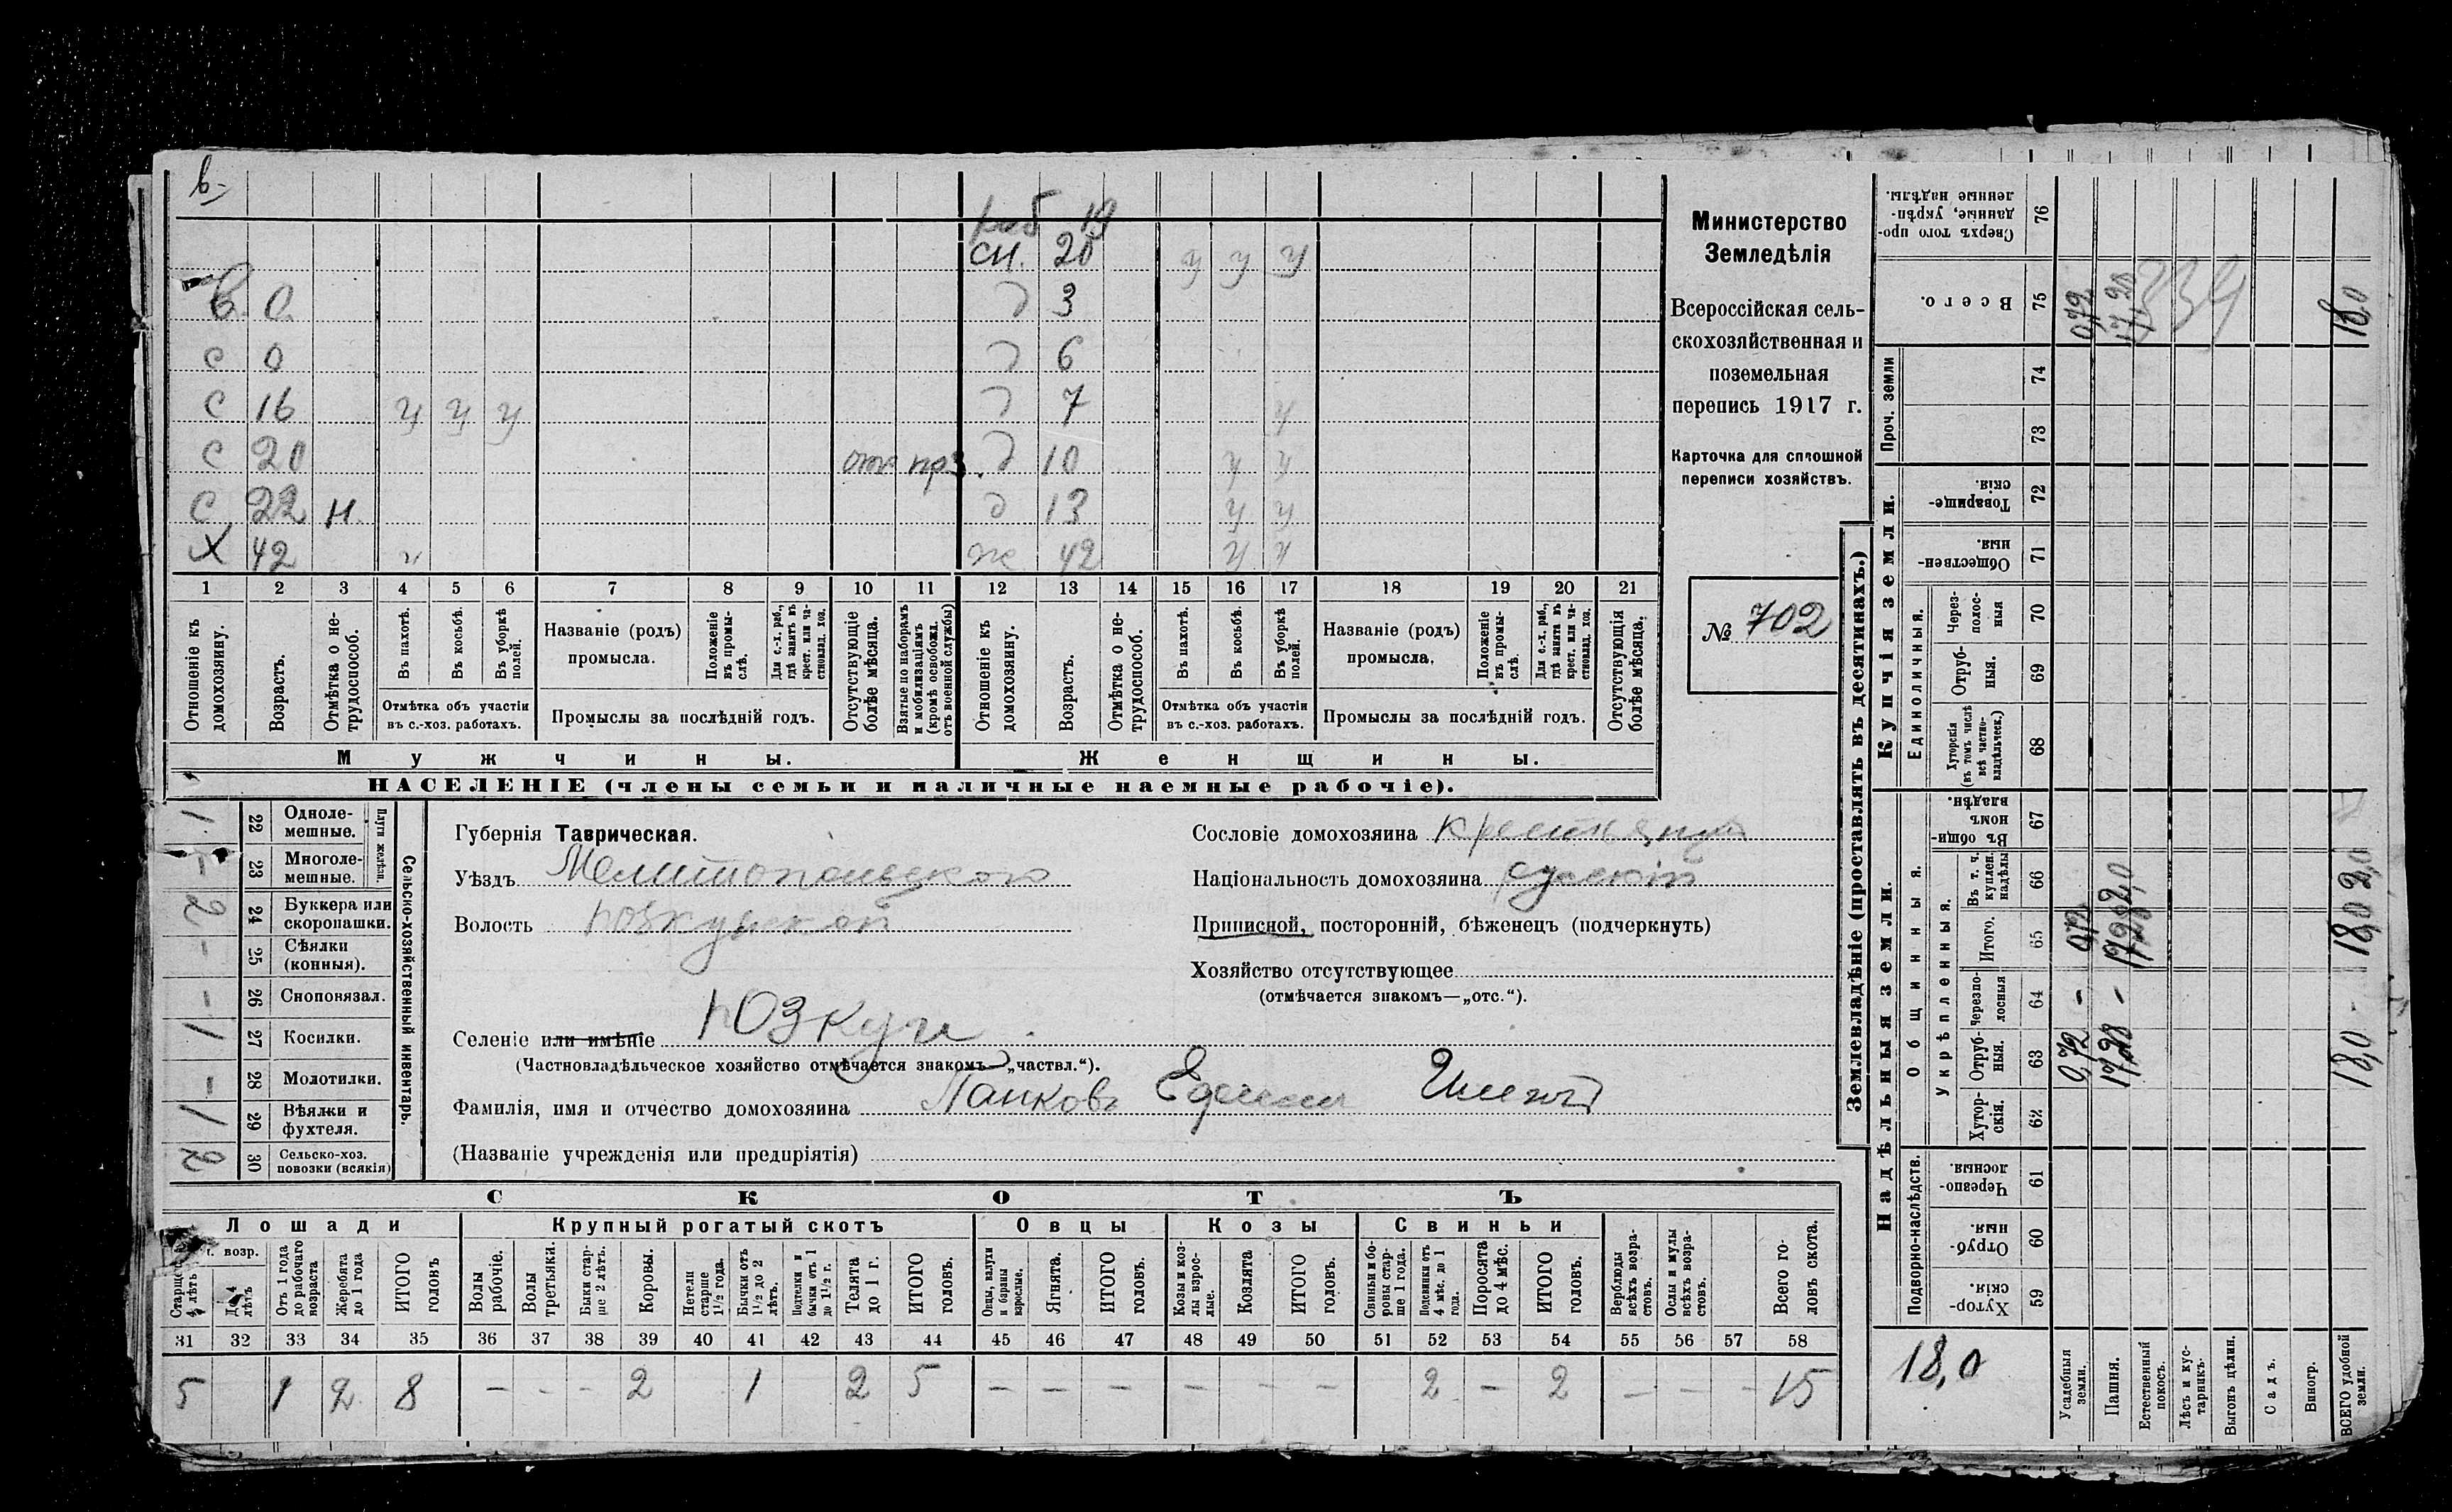 в
раб 19
сн. 20 у у у
В. 0. д 3
с 0 д 6
с 16 у у у д 7 у
с 20 отс пр3. д 10 у у
с 22 н. д 13 у у
х 42 ч ж 42 у у
1 2 3 4 5 6 7 8 9 10 11 12 13 14 15 16 17 18 19 20 21
Отношеніе къ домохозяину.
Возрастъ.
Отмѣтка о нетрудоспособ.
Въ пахотѣ.
Въ косьбѣ.
Въ уборкѣ полей.
Отмѣтка объ участіи
въ с.-хоз. работахъ.
Названіе (родъ)
промысла.
Положеніе въ промыслѣ.
Для с.-х. раб., гдѣ занятъ въ крест. или частновлад. хоз.
Промыслы за послѣдній годъ.
Отсутствующіе болѣе мѣсяца.
Взятые по наборамъ и мобилизаціямъ (кромѣ освобожд. отъ военной службы)
Отношеніе къ домохозяину.
Возрастъ.
Отмѣтка о нетрудоспособ.
Въ пахотѣ.
Въ косьбѣ.
Въ уборкѣ полей.
Отмѣтка объ участіи
въ с.-хоз. работахъ.
Названіе (родъ)
промысла.
Положеніе въ промыслѣ.
Для с.-х. раб., гдѣ занята въ крест. или частновлад. хоз.
Промыслы за послѣдній годъ.
Отсутствующія болѣе мѣсяца.
Мужчины. Женщины.
НАСЕЛЕНІЕ (члены семьи и наличные наемные рабочіе).
Министерство
Земледѣлія
Всероссійская сель-
скохозяйственная и
поземельная
перепись 1917 г.
Карточка для сплошной
переписи хозяйствъ.
№ 702
Сельско-хозяйственный инвентарь.
Плуги желѣзн.
1 22 Одноле-
мешные.
- 23 Многоле-
мешные.
2 24 Буккера или
скоропашки.
- 25 Сѣялки
(конныя).
- 26 Сноповязал.
1 27 Косилки.
- 28 Молотилки.
1 29 Вѣялки и
фухтеля.
2 30 Сельско-хоз.
повозки (всякія)
Губернія Таврическая.
Уѣздъ Мелитопольского
Волость Юзкуйской
Селеніе или имѣніе Юзкуи
(Частновладѣльческое хозяйство отмѣчается знакомъ „частвл.“).
Фамилія, имя и отчество домохозяина Панковъ
(Названіе учрежденія или предпріятія)
Сословіе домохозяина крестьянин
Національность домохозяина русскій
Приписной, посторонній, бѣженецъ (подчеркнуть)
Хозяйство отсутствующее
(отмѣчается знакомъ—„отс.“).
СКОТЪ
Лошади Крупный рогатый скотъ Овцы Козы Свиньи
г. возр.
Старше 4 лѣтъ
До 4 лѣтъ
Отъ 1 года до рабочаго возраста
Жеребята до 1 года
ИТОГО головъ
Волы рабочіе.
Волы третьяки.
Быки старше 2 лѣтъ.
Коровы.
Нетели старше 1½ года.
Бычки отъ 1½ до 2 лѣтъ.
Подтелки и бычки отъ 1 до 1½ г.
Телята до 1 г.
ИТОГО головъ.
Овцы, валухи и бараны взрослые.
Ягнята.
ИТОГО головъ.
Козы и козлы взрослые.
Козлята
ИТОГО головъ.
Свиньи и боровы старше 1 года.
Подсвинки отъ 4 мѣс. до 1 года.
Поросята до 4 мѣс.
ИТОГО головъ.
Верблюды всѣхъ возрастовъ.
Ослы и мулы всѣхъ возрастовъ.
Всего головъ скота.
31 32 33 34 35 36 37 38 39 40 41 42 43 44 45 46 47 48 49 50 51 52 53 54 55 56 57 58
5 1 2 8 - - - 2 1 2 5 - - - - - - 2 - 2 - - - 15
Землевладѣніе (проставлять въ десятинахъ.)
Надѣльныя земли. Купчія земли. Проч. земли
Подворно-наслѣдств. Общинныя. Единоличныя.
Укрѣпленныя.
Хуторскія. 59
Отрубныя. 60
Черезполосныя. 61
Хуторскія. 62
Отрубныя. 63
Черезполосныя 64
Итого. 65
Въ т. ч. куплен. надѣлы 66
Въ общинномъ владѣн. 67
Хуторскія (въ томъ числѣ всѣ частновладѣльческ.) 68
Отрубныя. 69
Черезполосныя 70
Общественныя. 71
Товарищескія. 72
73
74
Всего. 75
Сверхъ того проданные, укрѣпленные надѣлы. 76
18,0
Усадебныя земли. 0,72 - 0,72 0,72
Пашня. 17,28 - 17,28 2,0 17,28
334
Естественный покосъ.
Лѣсъ и кустарникъ.
Выгонъ цѣлин.
Садъ.
Виногр.
ВСЕГО удобной земли. 18,0 - 18,0 2,0 18,0